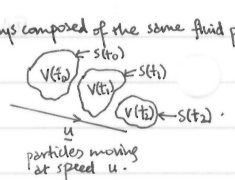 ys composed of the same fluid p
S(t₀)
V(t₀)
S(t₁)
V(t₁)
V(t₂) S(t₂).
u
particles moving
at speed u.